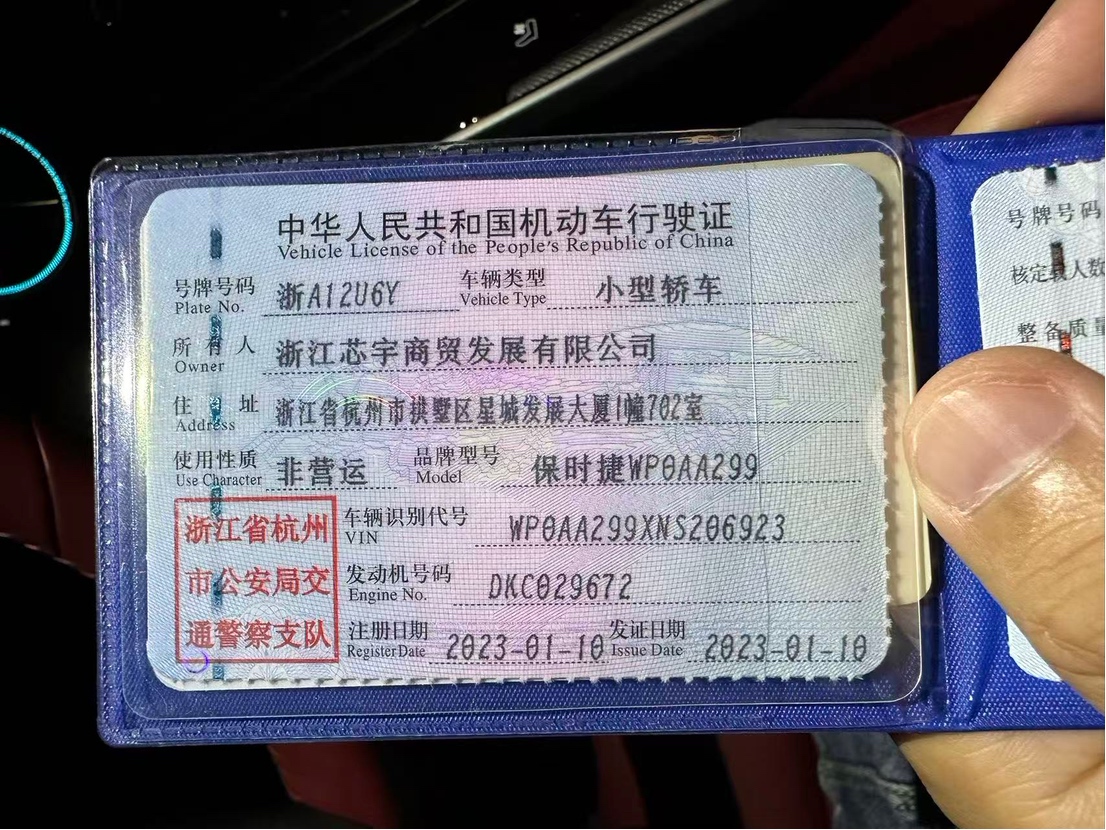 中华人民共和国机动车行驶证
Vehicle License of the People's Republic of China
号牌号码 浙A12U6Y 车辆类型 小型轿车
Plate No. Vehicle Type
所有人 浙江芯宇商贸发展有限公司
Owner
住址 浙江省杭州市拱墅区星城发展大厦1幢702室
Address
使用性质 非营运 品牌型号 保时捷WP0AA299
Use Character Model
浙江省杭州
市公安局交
通警察支队
车辆识别代号 WP0AA299XNS206923
VIN
发动机号码 DKC029672
Engine No.
注册日期 2023-01-10 发证日期 2023-01-10
Register Date Issue Date
号牌号码
核定载人数
整备质量